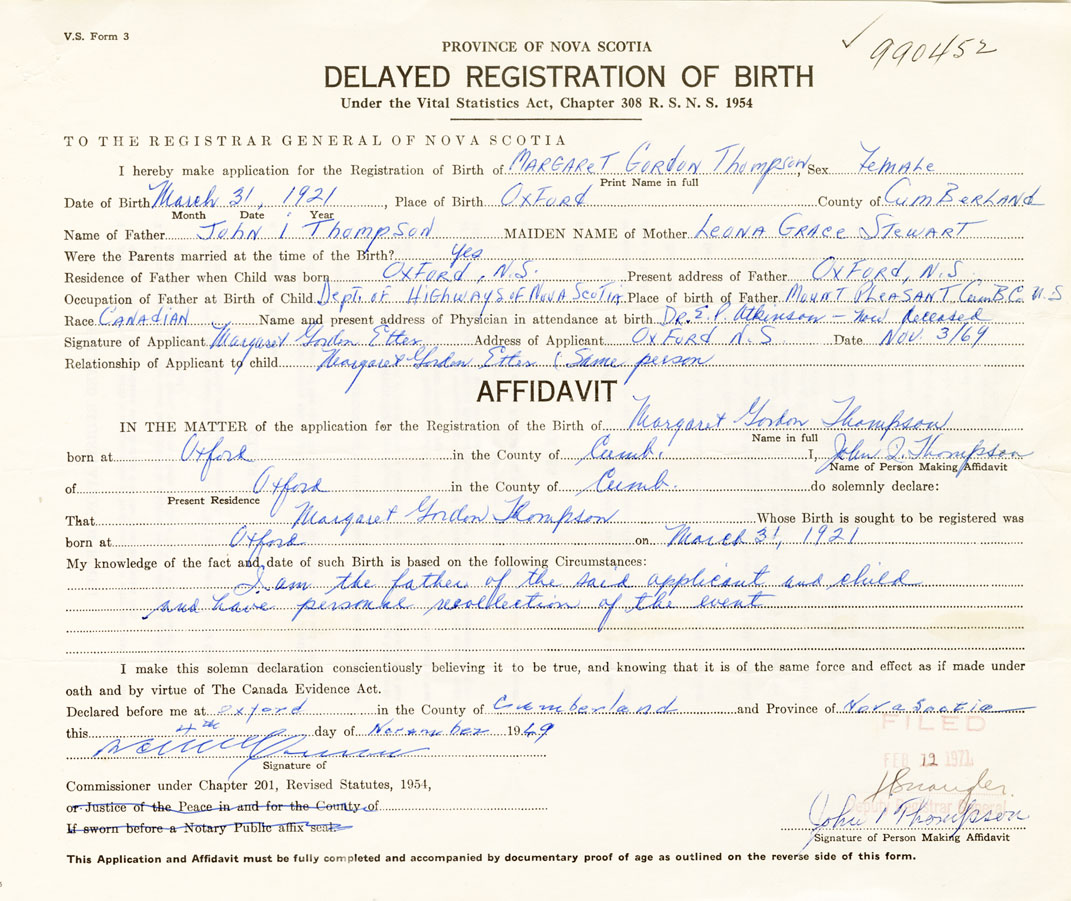 V.S. Form 3
990452
PROVINCE OF NOVA SCOTIA
DELAYED REGISTRATION OF BIRTH
Under the Vital Statistics Act, Chapter 308 R. S. N. S. 1954
TO THE REGISTRAR GENERAL OF NOVA SCOTIA
I hereby make application for the Registration of Birth of MARGARET GORDON Thompson, Sex Female
Print Name in full
Date of Birth March 31, 1921, Place of Birth OXFORD County of CUMBERLAND
Month Date Year
Name of Father John I Thompson MAIDEN NAME of Mother LEONA GRACE STEWART
Were the Parents married at the time of the Birth? yes
Residence of Father when Child was born OXFORD, N.S. Present address of Father OXFORD, N.S.
Occupation of Father at Birth of Child Dept. of HIGHWAYS of NOVA SCOTIA Place of birth of Father MOUNT PLEASANT Cumb. Co. N.S
Race CANADIAN Name and present address of Physician in attendance at birth DR. E. P. Atkinson - now deceased
Signature of Applicant Margaret Gordon Etter Address of Applicant OXFORD N.S Date NOV. 3/69
Relationship of Applicant to child Margaret Gordon Etter (Same person
AFFIDAVIT
IN THE MATTER of the application for the Registration of the Birth of Margaret Gordon Thompson
Name in full
born at Oxford in the County of Cumb. I, John I. Thompson
Name of Person Making Affidavit
of Oxford in the County of Cumb. do solemnly declare:
Present Residence
That Margaret Gordon Thompson Whose Birth is sought to be registered was
born at Oxford on March 31, 1921
My knowledge of the fact and date of such Birth is based on the following Circumstances:
I am the father of the said applicant and child
and have personal recollection of the event
I make this solemn declaration conscientiously believing it to be true, and knowing that it is of the same force and effect as if made under
oath and by virtue of The Canada Evidence Act.
Declared before me at Oxford in the County of Cumberland and Province of Nova Scotia
this 4th day of November 1969
FILED
FEB 12 1971
Signature of
Commissioner under Chapter 201, Revised Statutes, 1954,
or Justice of the Peace in and for the County of
Deputy Registrar General
If sworn before a Notary Public affix seal.
John I Thompson
Signature of Person Making Affidavit
This Application and Affidavit must be fully completed and accompanied by documentary proof of age as outlined on the reverse side of this form.